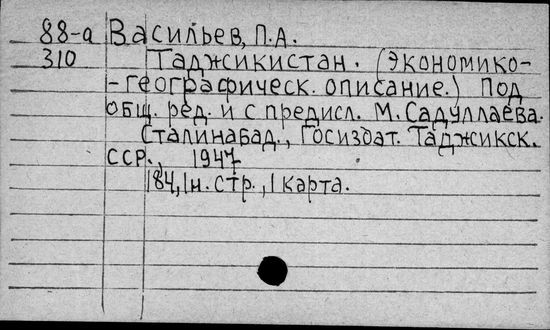 88-а Васильев, П.А.
310 Таджикистан. (Экономико-
-географическ. описание.) Под
общ. ред. и с предисл. М. Садуллаева.
Сталинабад., Госиздат. Таджикск.
ССР., 1947
184, 1н. стр., 1 карта.